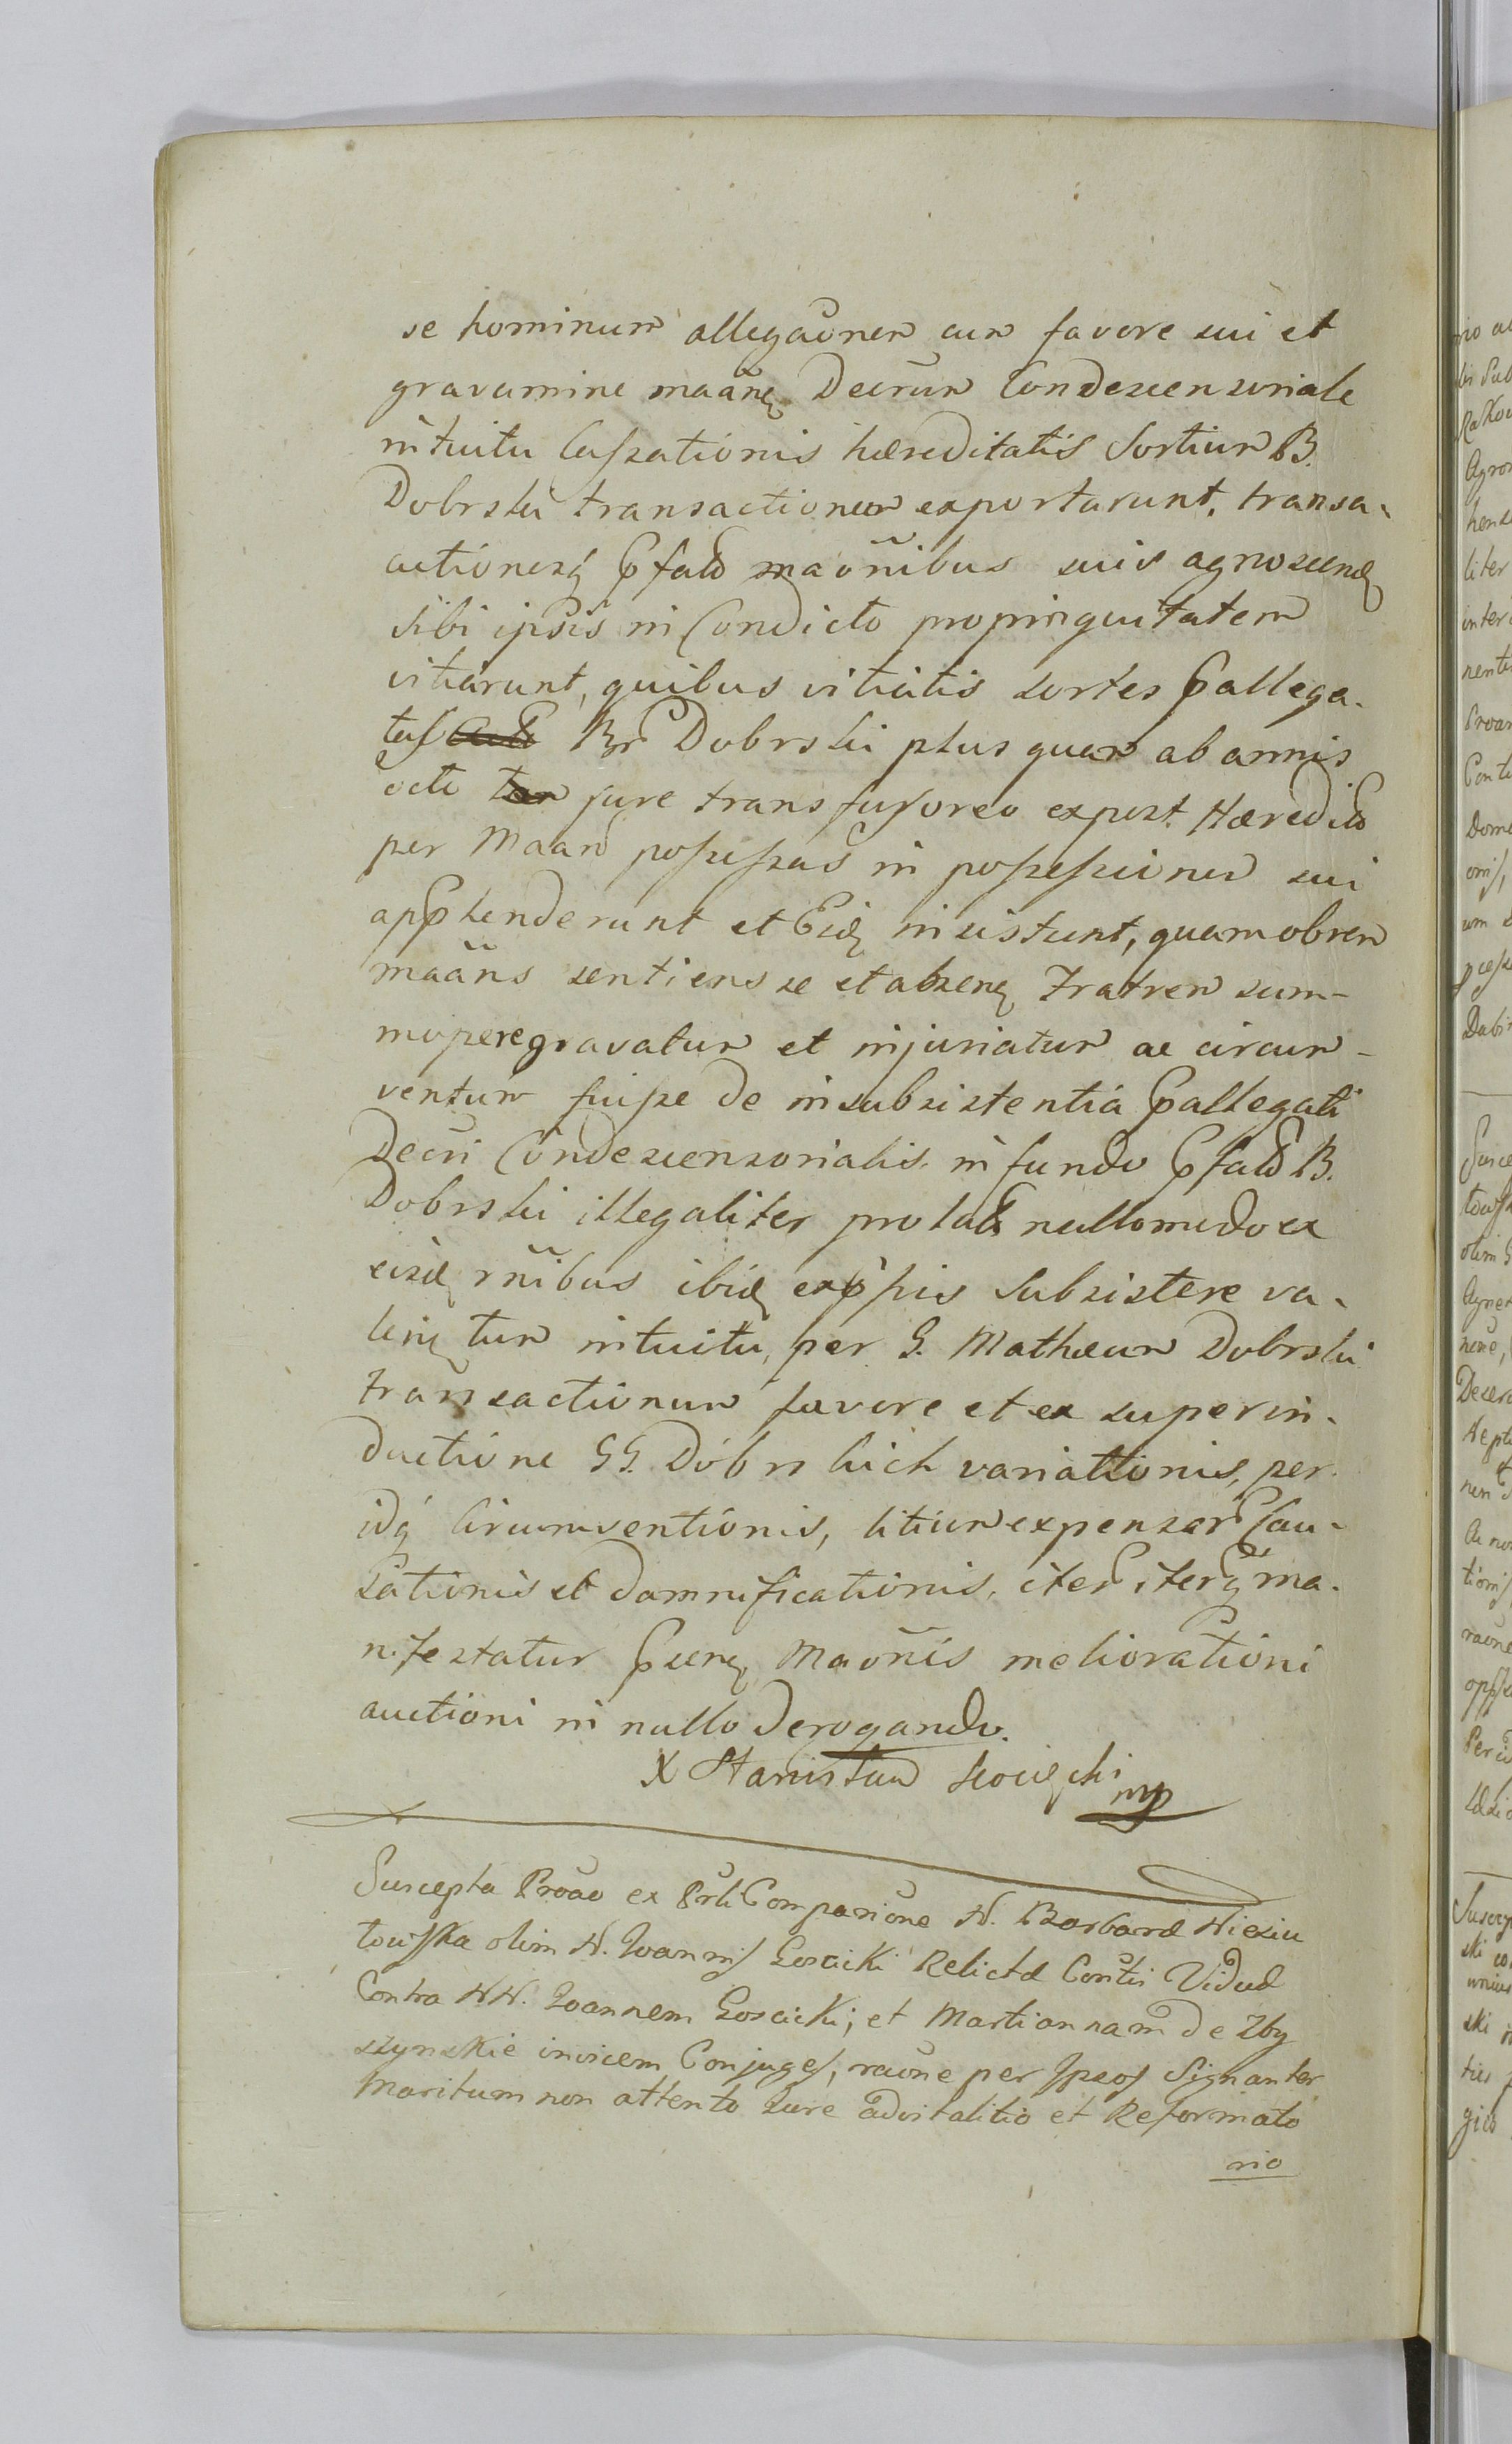 se hominum allegaōnem cum favore sui et
gravamine maānꝫ Decrūm Condescensoriale
intuitu Cassationis hæreditatis Sortium B.
Dobrski transactionum exportarunt, transa-
actionesq́ pfatɔ maōnibus suis agnoscendꝫ
sibi ipsis in Condicto propinquitatem
vitiarunt, quibus vitiatis sortes pallega-
tas Br Dobrski plus quam ab annis
octo jure transfusoreo expost. Hæreditɔ
per Maan possessas in possessionem sui
appհenderunt et Eidꝫ insistunt, quamobrem
maāns sentiens se et absenꝫ Fratrem sum-
mopere gravatum et injuriatum ac circum-
ventum fuisse de insubsistentia pallegati
Decri Condescensorialis in fundo pfatɔ B.
Dobrski illegaliter prolatɔ nullomodo ex
eisdꝫ rn̄ibus ibidꝫ expssis Subsistere va-
lenꝫ tum intuitu, per G. Mathæum Dobrski
transactionum favore et ex superin-
ductione GG. Dobrskich variationis, per
idq́ Circumventionis, litium expensar Cau-
sationis et damnificationis, iter iterq́ ma-
nifestatur psenꝫ Maōnis meliorationi
auctioni in nullo derogando.
X Stanisław mp
Suscepta Proāo ex Prli Comparīone N. Barbaræ Niesiu
towska olim N. Joannis Gosciki Relictæ Contis Viduæ
Contra NN. Joannem Goscicki, et Martiannam de Zby
szynskie invicem Conjuges, raōne per Ipsos Signanter
Maritum non attento Jure advitalitio et Reformato
rio